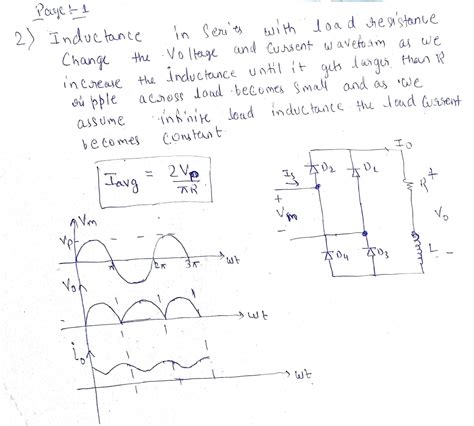 Page:-1
2) Inductance in Series with load resistance
Change the Voltage and Current waveform as we
increase the Inductance until it gets larger than R
ripple across load becomes small and as we
assume infinite load inductance the load current
becomes constant
Iavg = 2Vp / πR
Vm
Vp
π 2π 3π ωt
Vo
ωt
io
ωt
Io
D2 D1
Is
+
Vm
-
D4 D3
R +
Vo
L -